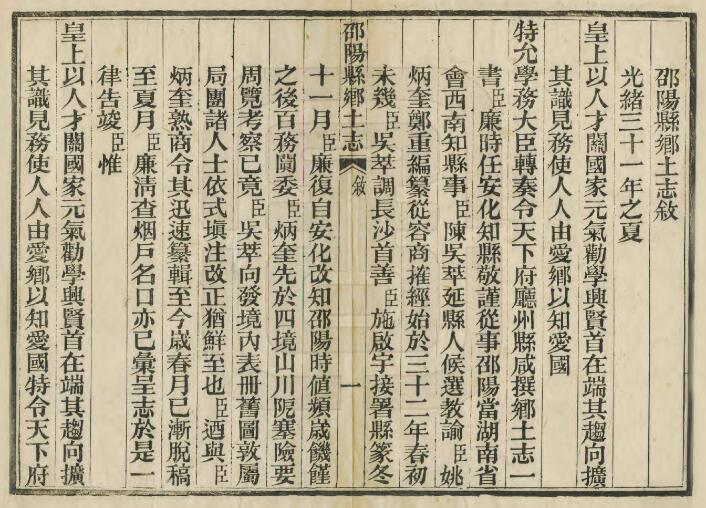 邵陽縣鄉土志敘
光緒三十一年之夏
皇上以人才關國家元氣勸學興賢首在端其趨向擴
其識見務使人人由愛鄉以知愛國
特允學務大臣轉奏令天下府廳州縣咸撰鄉土志一
書臣廉時任安化知縣敬謹從事邵陽當湖南省
會西南知縣事臣陳吳萃延縣人候選教諭臣姚
炳奎鄭重編纂從容商搉經始於三十二年春初
未幾臣吳萃調長沙首善臣施啟宇接署縣篆冬
邵陽縣鄉土志 敘 一
十一月臣廉復自安化改知邵陽時値頻歲饑饉
之後百務閴委臣炳奎先於四境山川阨塞險要
周覽考察已竟臣吳萃向發境內表冊舊圖敦屬
局團諸人士依式塡注改正猶鮮至也臣迺與臣
炳奎熟商令其迅速纂輯至今歲春月已漸脫稿
至夏月臣廉淸查烟戶名口亦已彙呈志於是一
律告竣臣惟
皇上以人才關國家元氣勸學興賢首在端其趨向擴
其識見務使人人由愛鄉以知愛國特令天下府